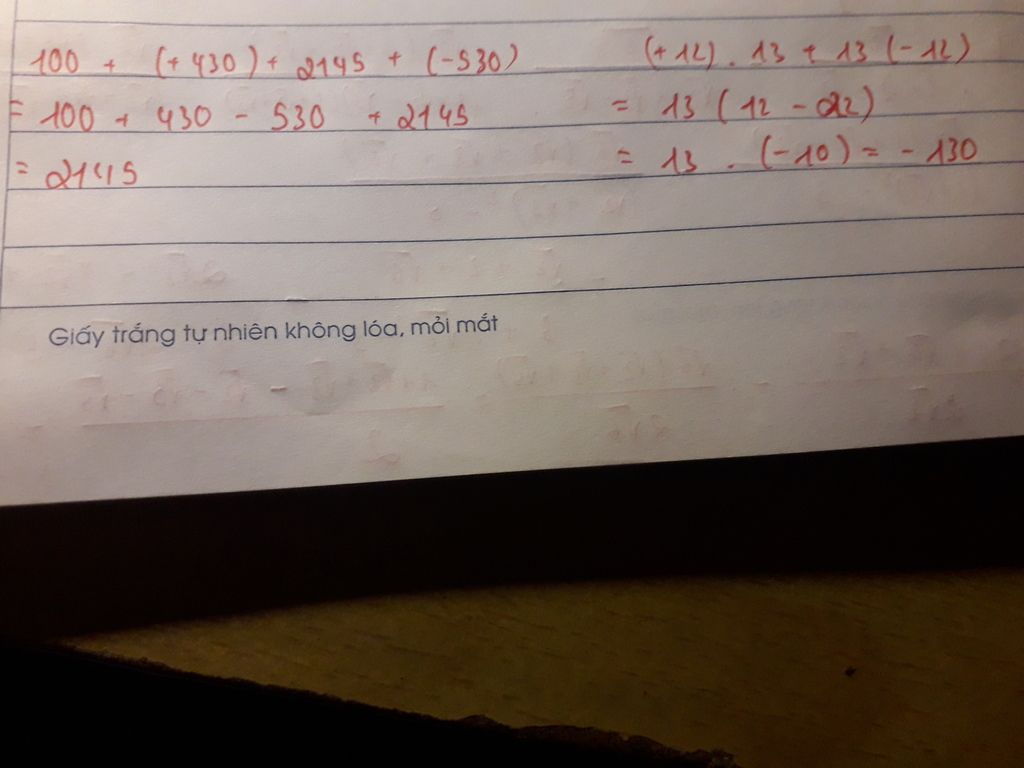 100 + (+430) + 2145 + (-530)
= 100 + 430 - 530 + 2145
= 2145
(+12) . 13 + 13 (-12)
= 13 (12 - 22)
= 13 . (-10) = - 130
Giấy trắng tự nhiên không lóa, mỏi mắt